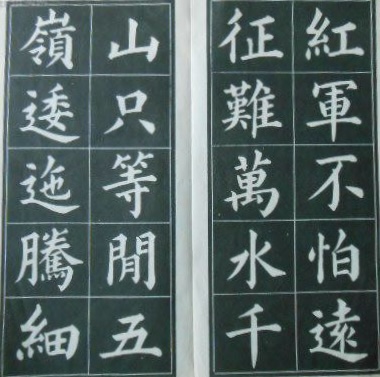 紅軍不怕遠
征難萬水千
山只等閒五
嶺逶迤騰細